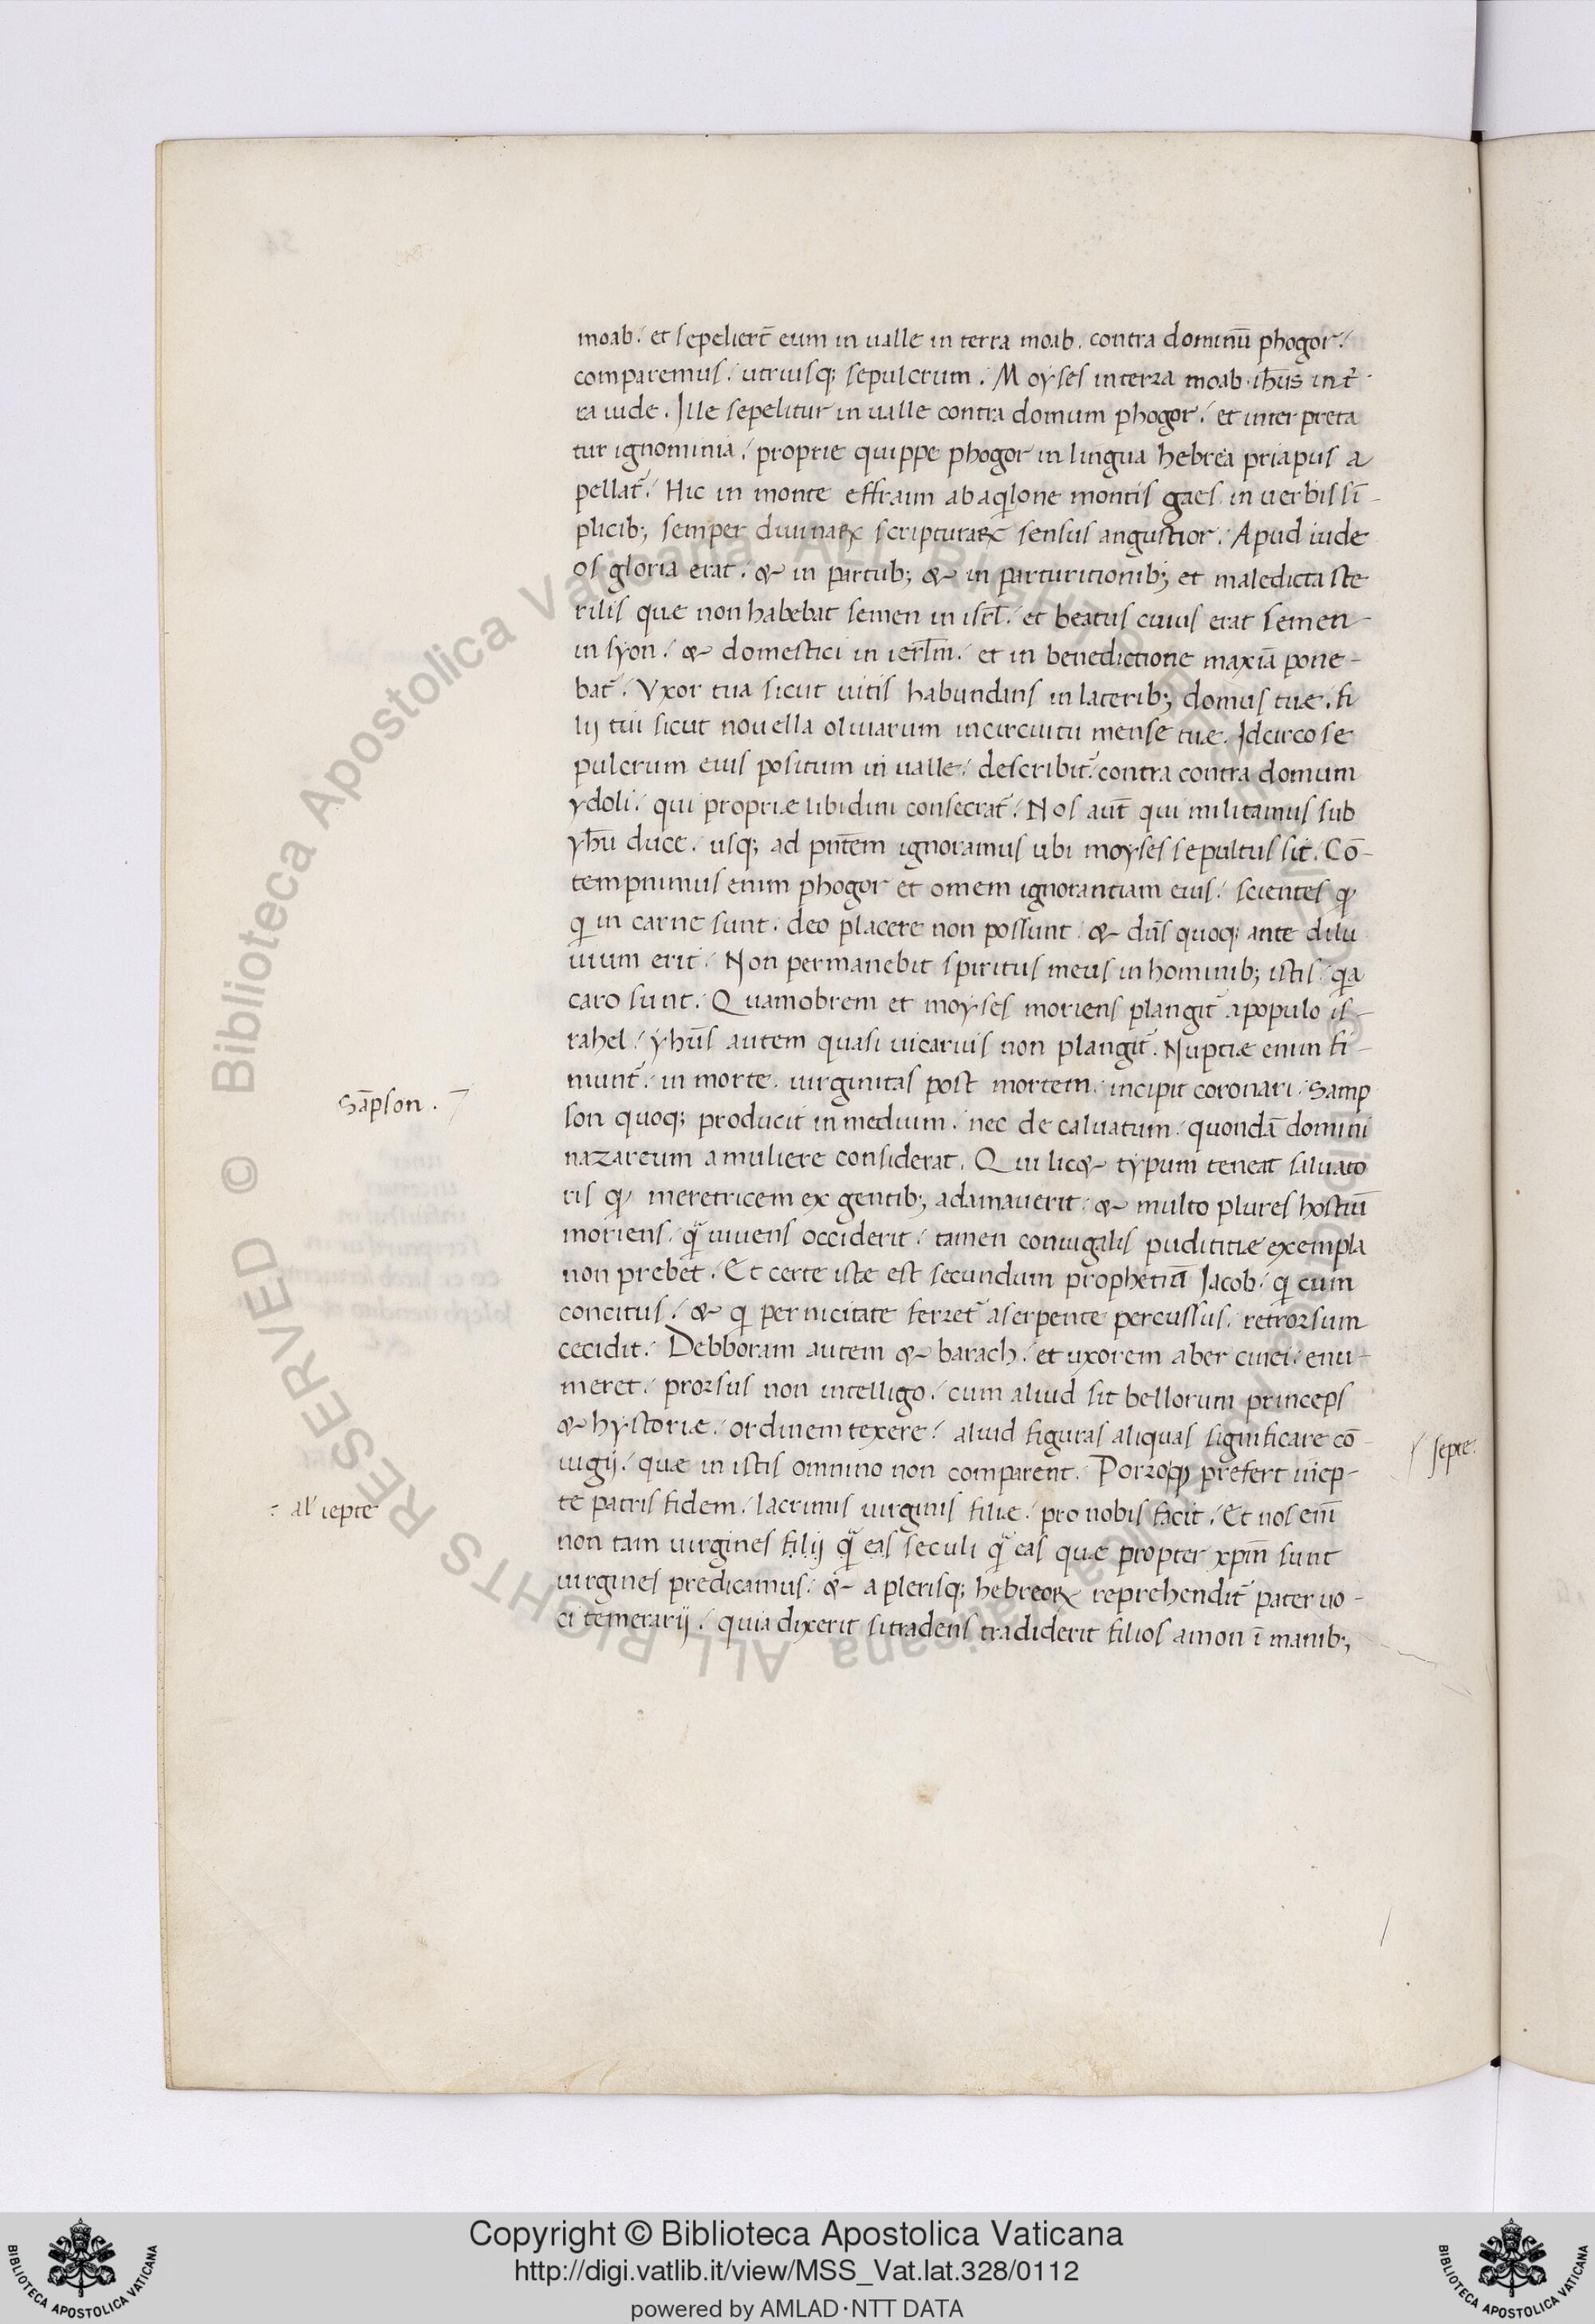 moab. et sepeliert̄ eum in ualle in terra moab. contra dominū phogor.
comparemus. utriusq; sepulcrum. Moyses in terra moab. ihūs in t̄
ra iude. Ille sepelitur in ualle contra domum phogor. et inter preta
tur ignominia. proprie quippe phogor in lingua hebrea priapus a
pellat̄. Hic in monte effraim ab aqlone montis gaes. in uerbis sī-
plicib; semper diuinaꝝ scripturaꝝ sensus angustior. Apud iude
os gloria erat. & in partub; & in parturitionib; et maledicta ste
rilis que non habebat semen in isrl̄. et beatus cuius erat semen
in syon. & domestici in ierlm̄. et in benedictione maxiā pone-
bat̄. Vxor tua sicut uitis habundans in laterib; domus tuæ. fi
lij tui sicut nouella oliuarum in circuitu mense tuæ. Idcirco se
pulcrum eius positum in ualle. describit̄. contra contra domum
ydoli. qui propriæ libidini consecrat̄. Nos aut̄ qui militamus sub
yhū duce. usq; ad pn̄tem ignoramus ubi moyses sepultus sit. Cō-
tempnimus enim phogor et omem ignorantiam eius. scientes ꝙ
q̄ in carne sunt. deo placere non possunt. & dn̄s quoq; ante dilu
uium erit. Non permanebit spiritus meus in hominib; istis. qa
caro sunt. Quamobrem et moyses moriens plangit̄ a populo is-
rahel. yhūs autem quasi uicarius non plangit̄. Nuptiæ enim fi-
niunt̄. in morte. uirginitas post mortem. incipit coronari. Samp
son quoq; producit in medium. nec de caluatum. quondā domini
nazareum a muliere considerat. Qui lic& typum teneat saluato
ris ꝙ meretricem ex gentib; adamauerit. & multo plures hostiū
moriens. q̄ uiuens occiderit. tamen coniugalis pudititiæ exempla
non prebet. Et certe istæ est secundum prophetiā Jacob. q̄ cum
concitus. & q̄ pernicitate ferret̄ a serpente percussus. retrorsum
cecidit. Debboram autem & barach. et uxorem aber cinei. enu-
meret. prorsus non intelligo. cum aliud sit bellorum princeps
& hystoriæ. ordinem texere. aliud figuras aliquas significare cō-
iugij. quæ in istis omnino non comparent. Porroꝙ prefert uiep-
te patris fidem. lacrimis uirginis filiæ. pro nobis facit. Et nos eni̅
non tam uirgines filij q̄ eas seculi q̄ eas quæ propter xpm̄ sunt
uirgines predicamus. & a plerisq; hebreoꝝ reprehendit̄ pater uo-
ci temerarij. quia dixerit si tradens tradiderit filios amon ī manib;
Sāpson.
: al' iepte
septe.
Copyright © Biblioteca Apostolica Vaticana
http://digi.vatlib.it/view/MSS_Vat.lat.328/0112
powered by AMLAD·NTT DATA
BIBLIOTECA APOSTOLICA VATICANA
BIBLIOTECA APOSTOLICA VATICANA
© Biblioteca Apostolica Vaticana ALL RIGHTS RESERVED